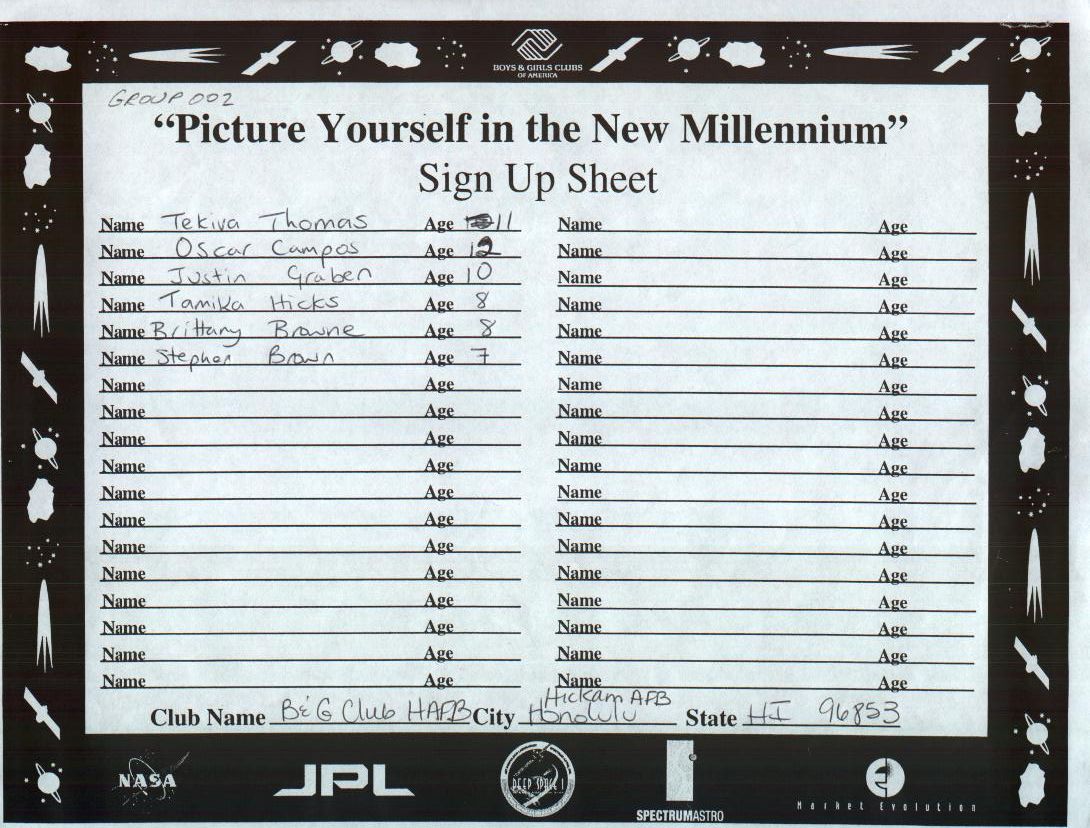 BOYS & GIRLS CLUBS
OF AMERICA
GROUP 002
“Picture Yourself in the New Millennium”
Sign Up Sheet
Name Tekiva Thomas Age 11 Name Age
Name Oscar Campos Age 12 Name Age
Name Justin Graben Age 10 Name Age
Name Tamika Hicks Age 8 Name Age
Name Brittany Browne Age 8 Name Age
Name Stephen Brown Age 7 Name Age
Name Age Name Age
Name Age Name Age
Name Age Name Age
Name Age Name Age
Name Age Name Age
Name Age Name Age
Name Age Name Age
Name Age Name Age
Name Age Name Age
Name Age Name Age
Name Age Name Age
Name Age Name Age
Hickam AFB
Club Name B&G Club HAFB City Honolulu State HI 96853
NASA JPL DEEP SPACE 1 SPECTRUMASTRO Market Evolution